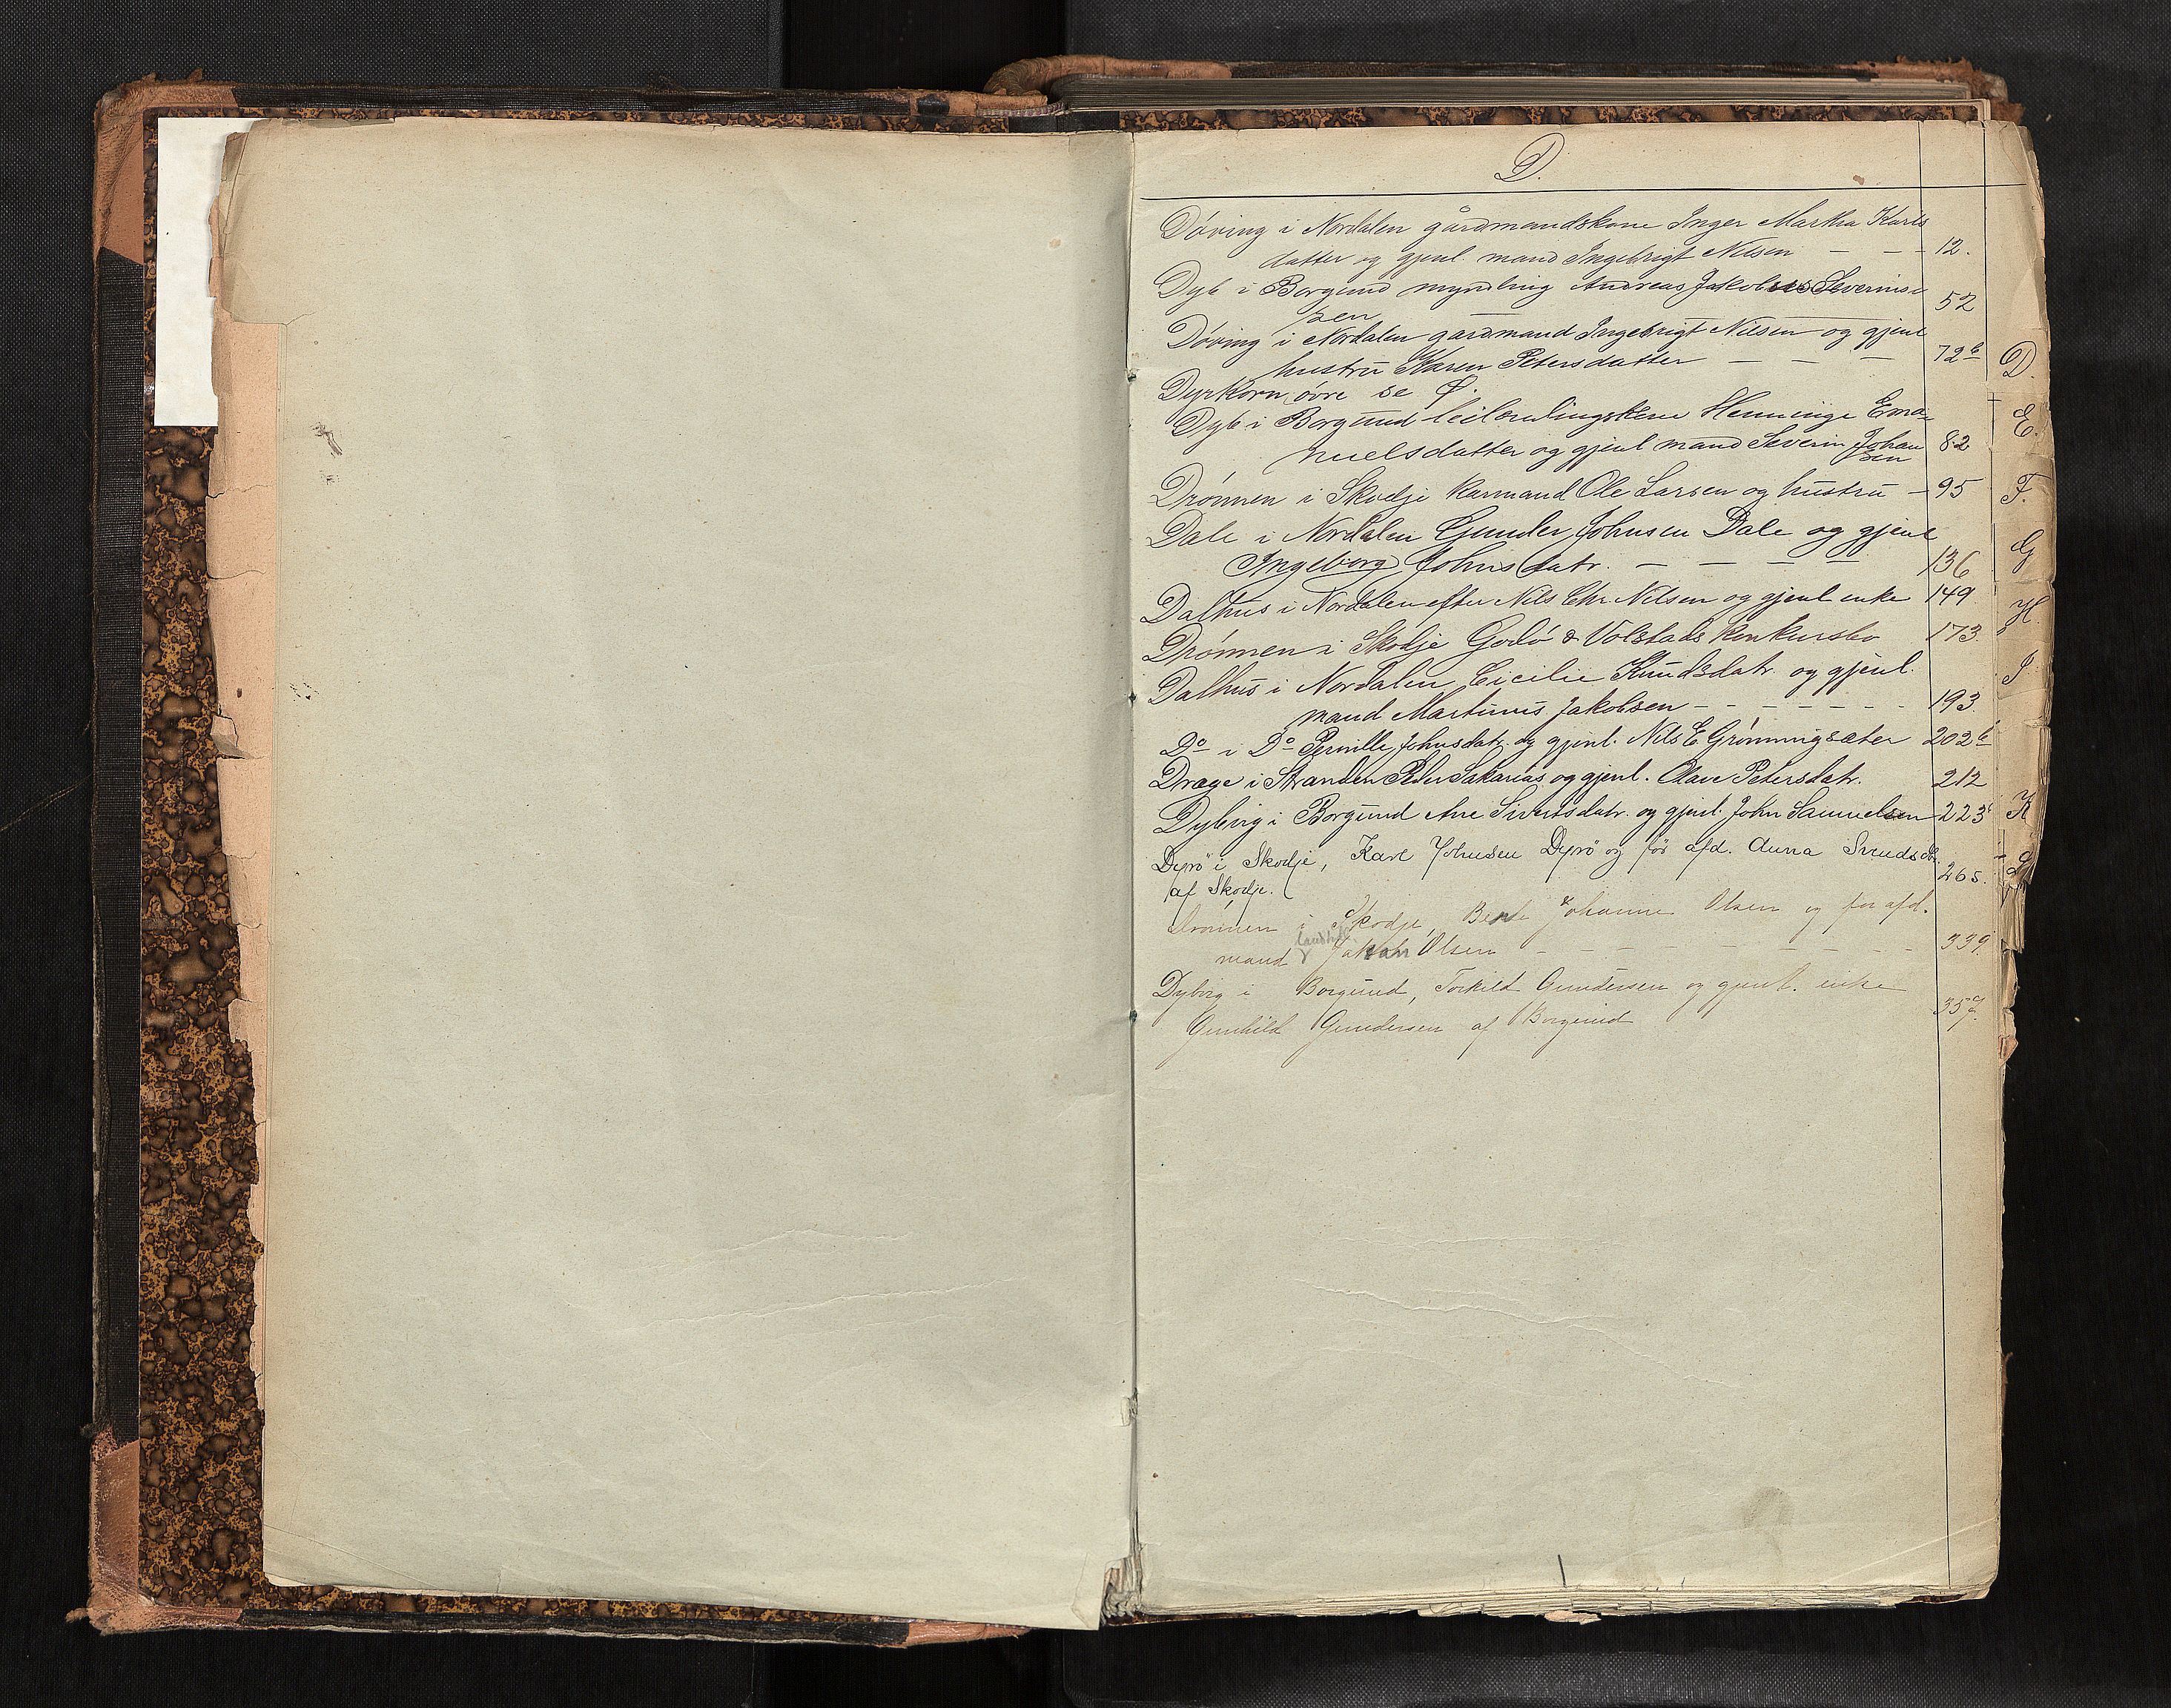 D.
Döving i Nordalen gårdmandskone Inger Martha Karls
datter og gjenl. mand Ingebrigt Nilsen - - - 12.
Dyb i Borgund myndling Andreas Jakob Severin-
sen 52
Döving i Nordalen gårdmand Ingebrigt Nilsen og gjenl
hustru Karen Petersdatter - - - 72b
Dyrkorn övre se Ø.
Dyb i Borgund leilændingskone Henninge Ema-
nuelsdatter og gjenl mand Severin Johan
sen 82
Drönnen i Skodje kaarmand Ole Larsen og hustru - 95
Dale i Nordalen Gunder Johnsen Dale og gjenl
Ingeborg Johnsdatr. - - - - 136
Dalhus i Nordalen efter Nils Chr Nilsen og gjenl enke 149
Drönnen i Skodje Godö & Volstads konkursbo 173
Dalhus i Nordalen Cicilie Knudsdatr. og gjenl.
mand Martinus Jakobsen - - - - - - - 193
Do i Do Pernille Johnsdatr. og gjenl. Nils E. Grönningsæter 202b
Drage i Stranden Peder Sakarias. og gjenl. Olave Petersdatr. 212
Dybvig i Borgund Ane Sivertsdatr. og gjenl. John Samuelsen 223b
Dyrö i Skodje, Karl Johnsen Dyrö og før afd. Anna Knudsdtr.
af Skodje. 265.
Drønnen i Skodje, Berte Johanne Olsen og før afd.
mand Jakob Olsen - - - - - - - - 339.
Dybvig i Borgund, Torkild Gundersen og gjenl. enke
Gunhild Gundersen af Borgund 357.
D.
E.
F.
G
H.
I
K
L